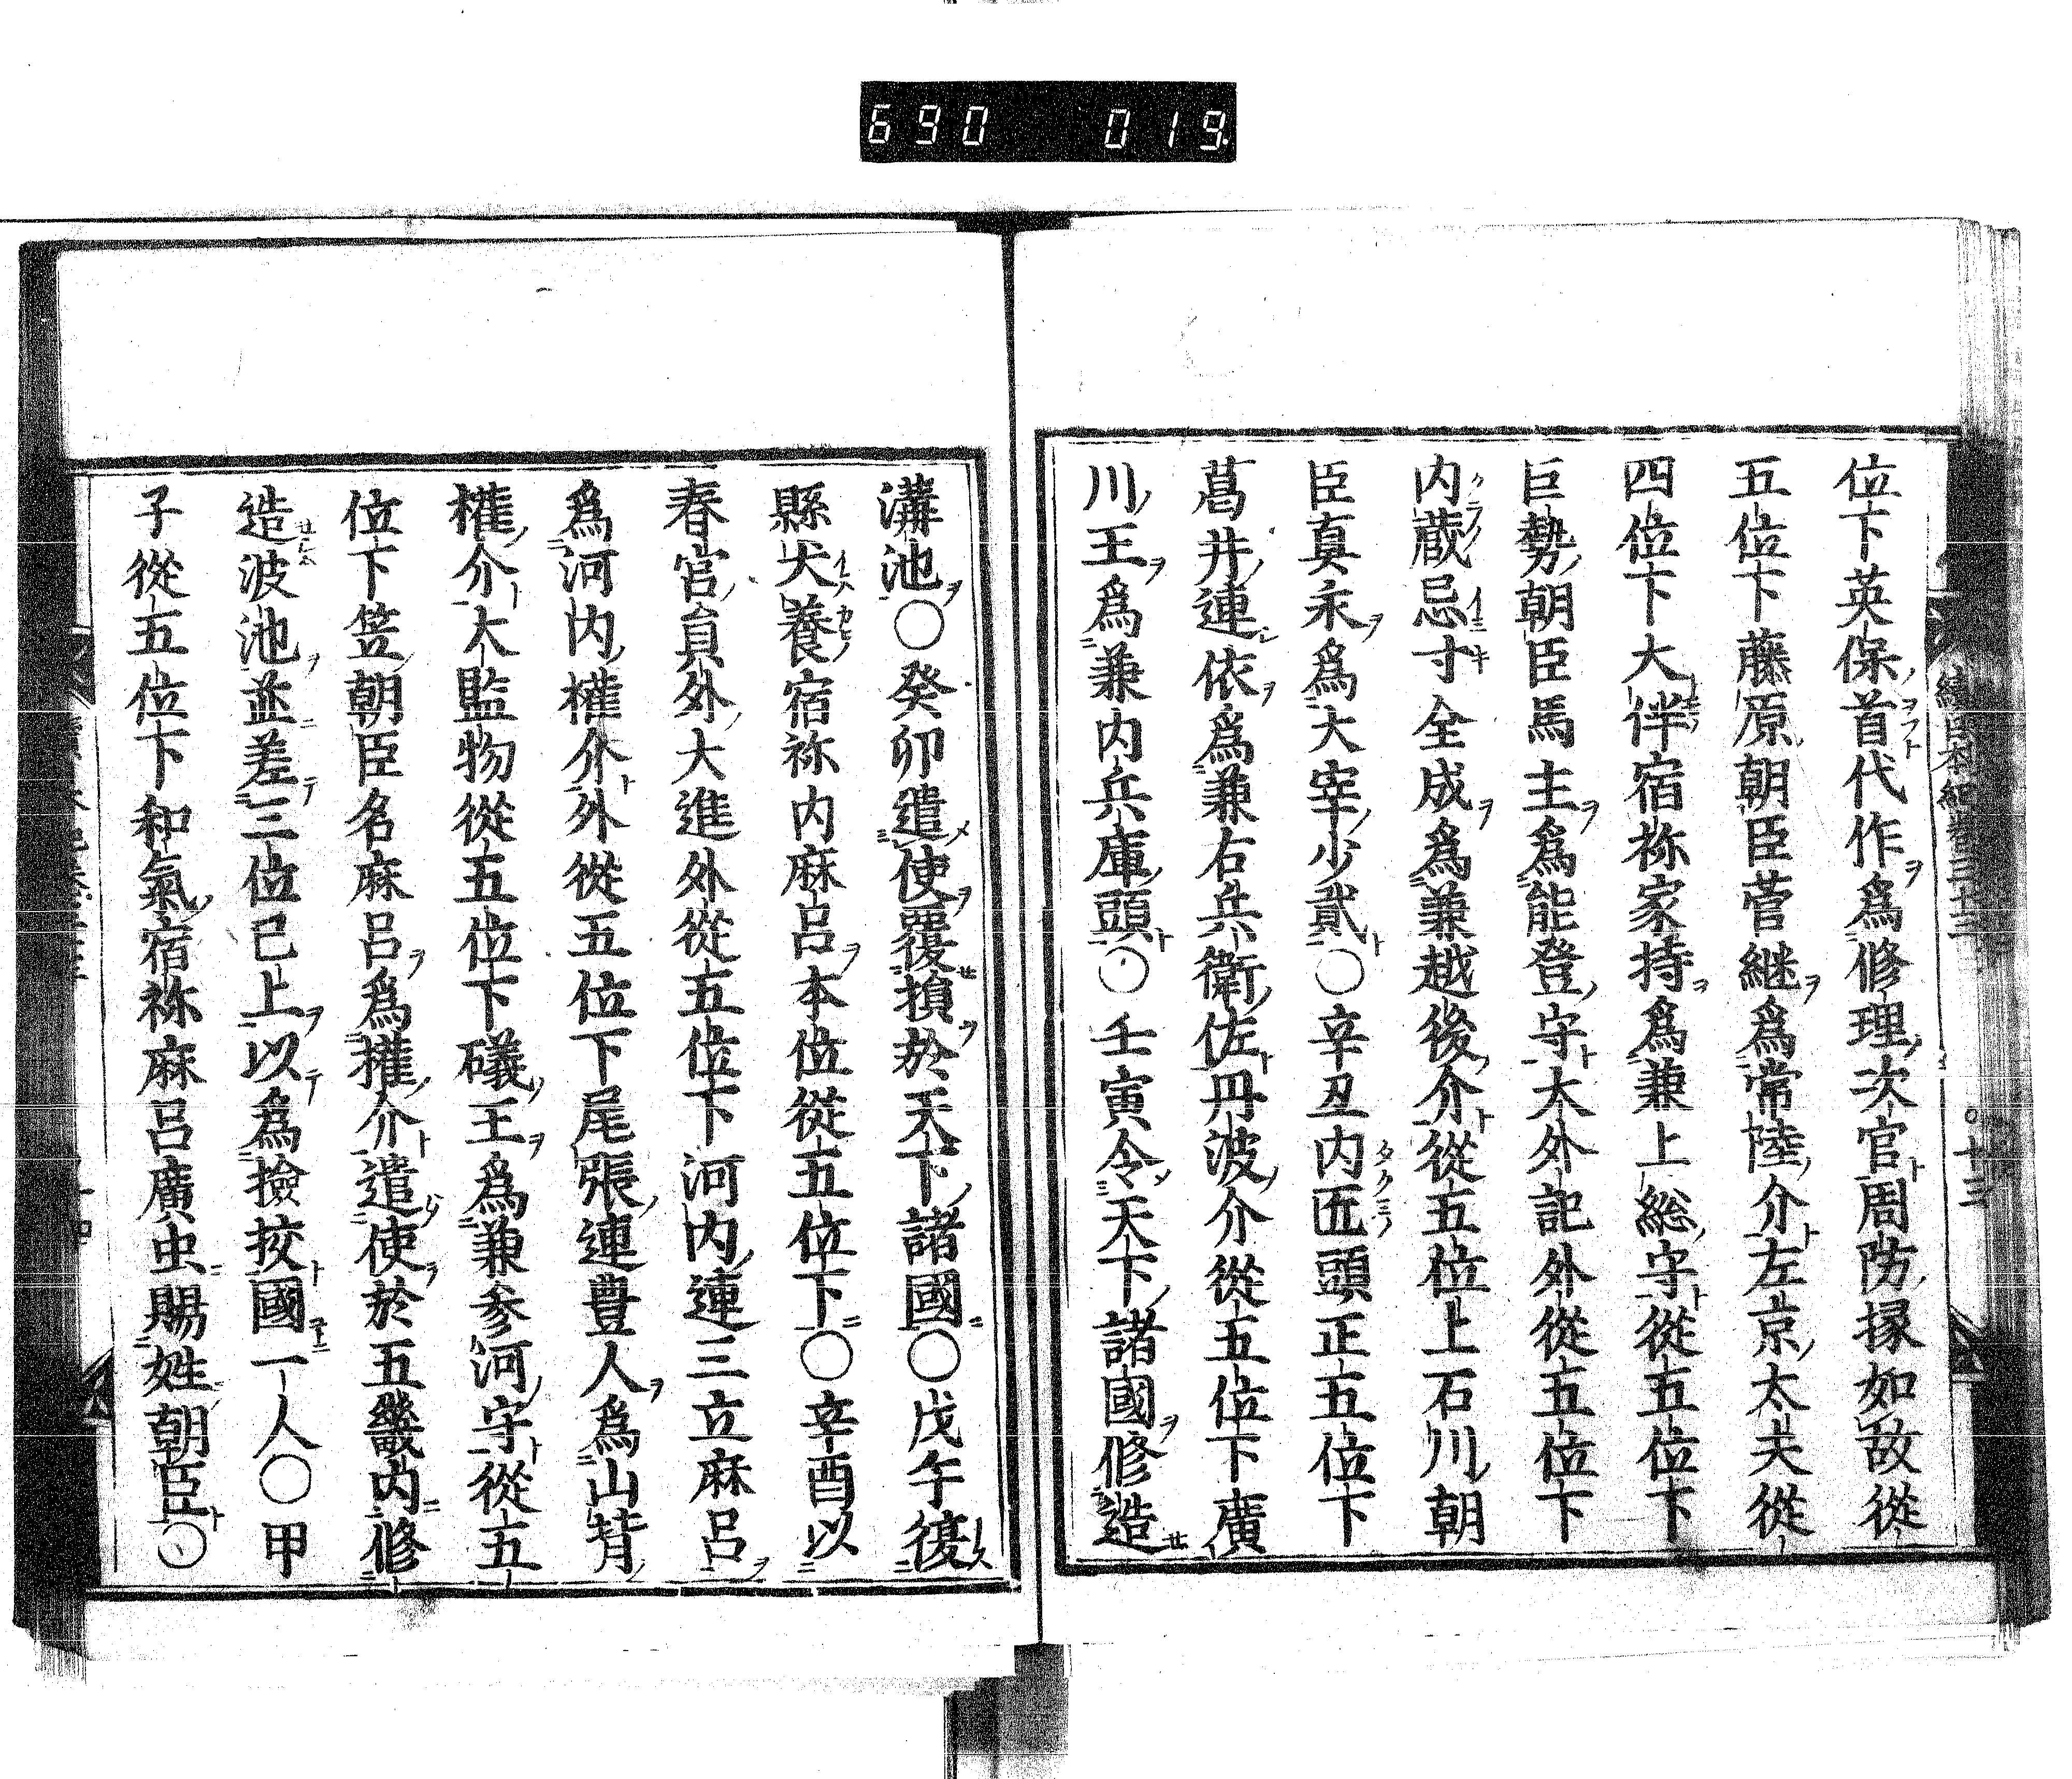 690 019
位下英保首代作爲修理次官周防掾如故從
五位下藤原朝臣菅継爲常陸介左京太夫從
四位下大伴宿祢家持爲兼上総守從五位下
巨勢朝臣馬主爲能登守太外記外從五位下
内蔵忌寸全成爲兼越後介從五位上石川朝
臣真永爲大宰少貳○辛丑内匠頭正五位下
葛井連依爲兼右兵衛佐丹波介從五位下廣
川王爲兼内兵庫頭○壬寅令天下諸國修造
溝池○癸卯遣使覆損於天下諸國○戊午復
縣犬養宿祢内麻呂本位從五位下○辛酉以
春官貟外大進外從五位下河内連三立麻呂
爲河内權介外從五位下尾張連豊人爲山背
權介大監物從五位下礒王爲兼参河守從五
位下笠朝臣名麻呂爲權介遣使於五畿内修
造波池並差三位已上以爲撿挍國一人○甲
子從五位下和氣宿祢麻呂廣虫賜姓朝臣○